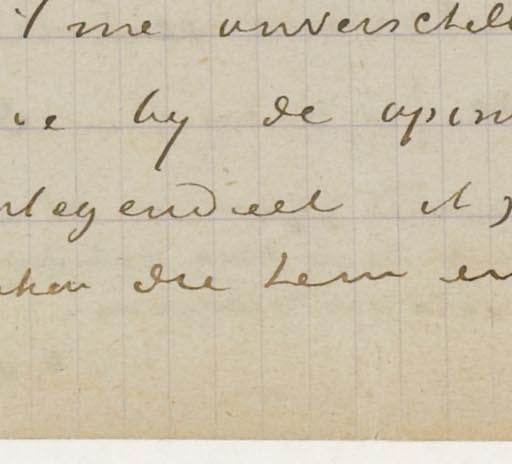 me onverschill
by de opin
tegendeel
die hem en